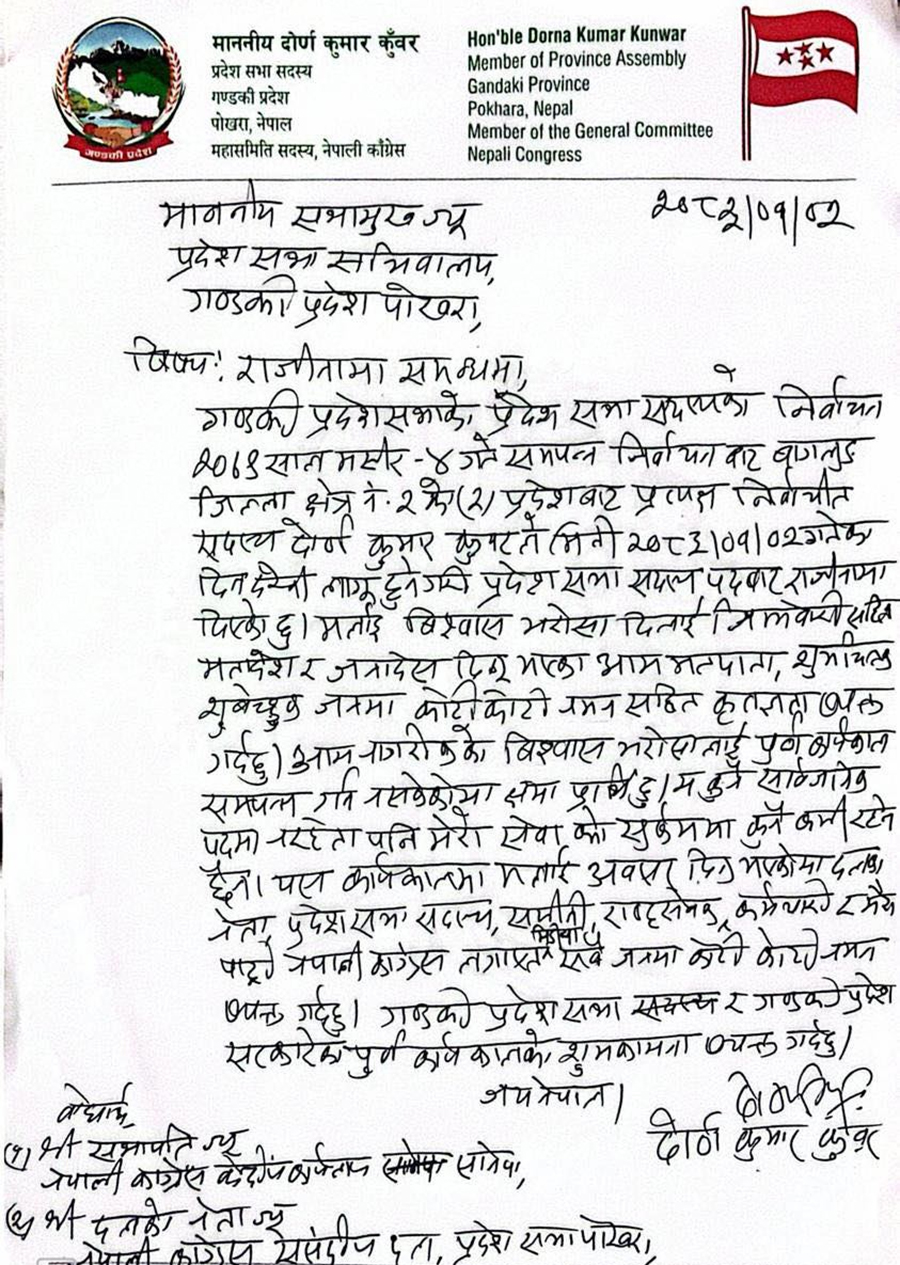 माननीय दोर्ण कुमार कुँवर
प्रदेश सभा सदस्य
गण्डकी प्रदेश
पोखरा, नेपाल
महासमिति सदस्य, नेपाली काँग्रेस
Hon'ble Dorna Kumar Kunwar
Member of Province Assembly
Gandaki Province
Pokhara, Nepal
Member of the General Committee
Nepali Congress
गण्डकी प्रदेश
२०८२/०१/०२
माननीय सभामुख ज्यू
प्रदेश सभा सचिवालय,
गण्डकी प्रदेश पोखरा,
विषय: राजीनामा सम्बन्धमा,
गण्डकी प्रदेशसभाको प्रदेश सभा सदस्यको निर्वाचन
२०७९ साल मंसीर-४ गते सम्पन्न निर्वाचन बाट बागलुङ
जिल्ला क्षेत्र नं. २ को (२) प्रदेशबाट प्रत्यक्ष निर्वाचीत
सदस्य दोर्ण कुमार कुवरले मिती २०८२/०१/०२ गतेका
दिन देखी लागू हुनेगरी प्रदेश सभा सदस्य पदबाट राजीनामा
दिएको छु। मलाई विश्वास भरोसा दिलाई जिम्मेवारी सहित
मतादेश र जनादेस दिनु भएका आम मतदाता, शुभचिन्तक
शुवेच्छुक जनमा कोटी कोटी नमन सहित कृतज्ञता व्यक्त
गर्दछु। आम नागरीकको विश्वास भरोसालाई पुर्ण कार्यकाल
सम्पन्न गर्न नसकेकोमा क्षमा प्रार्थी छु। म कुनै सार्वजनिक
पदमा नरहेता पनि मेरो सेवा को सुकर्ममा कुनै कमी रहने
छैन। यस कार्यकालमा मलाई अवसर दिनु भएकोमा दलका
नेता, प्रदेश सभा सदस्य, समीती, राष्ट्रसेवक, कर्मचारी र मेरो
मिडिया
पार्टी नेपाली कांग्रेस लगायत सबै जनमा कोटी कोटी नमन
व्यक्त गर्दछु। गण्डकी प्रदेश सभा सदस्य र गण्डकी प्रदेश
सरकारको पुर्ण कार्यकालको शुभकामना व्यक्त गर्दछु।
जय नेपाल।
दोर्ण कुमार कुँवर
बोधार्थ,
(१) श्री सभापति ज्यू
नेपाली कांग्रेस केन्द्रीय कार्यालय सानेपा,
(२) श्री दलको नेता ज्यू
नेपाली कांग्रेस संसदीय दल, प्रदेश सभा पोखरा,